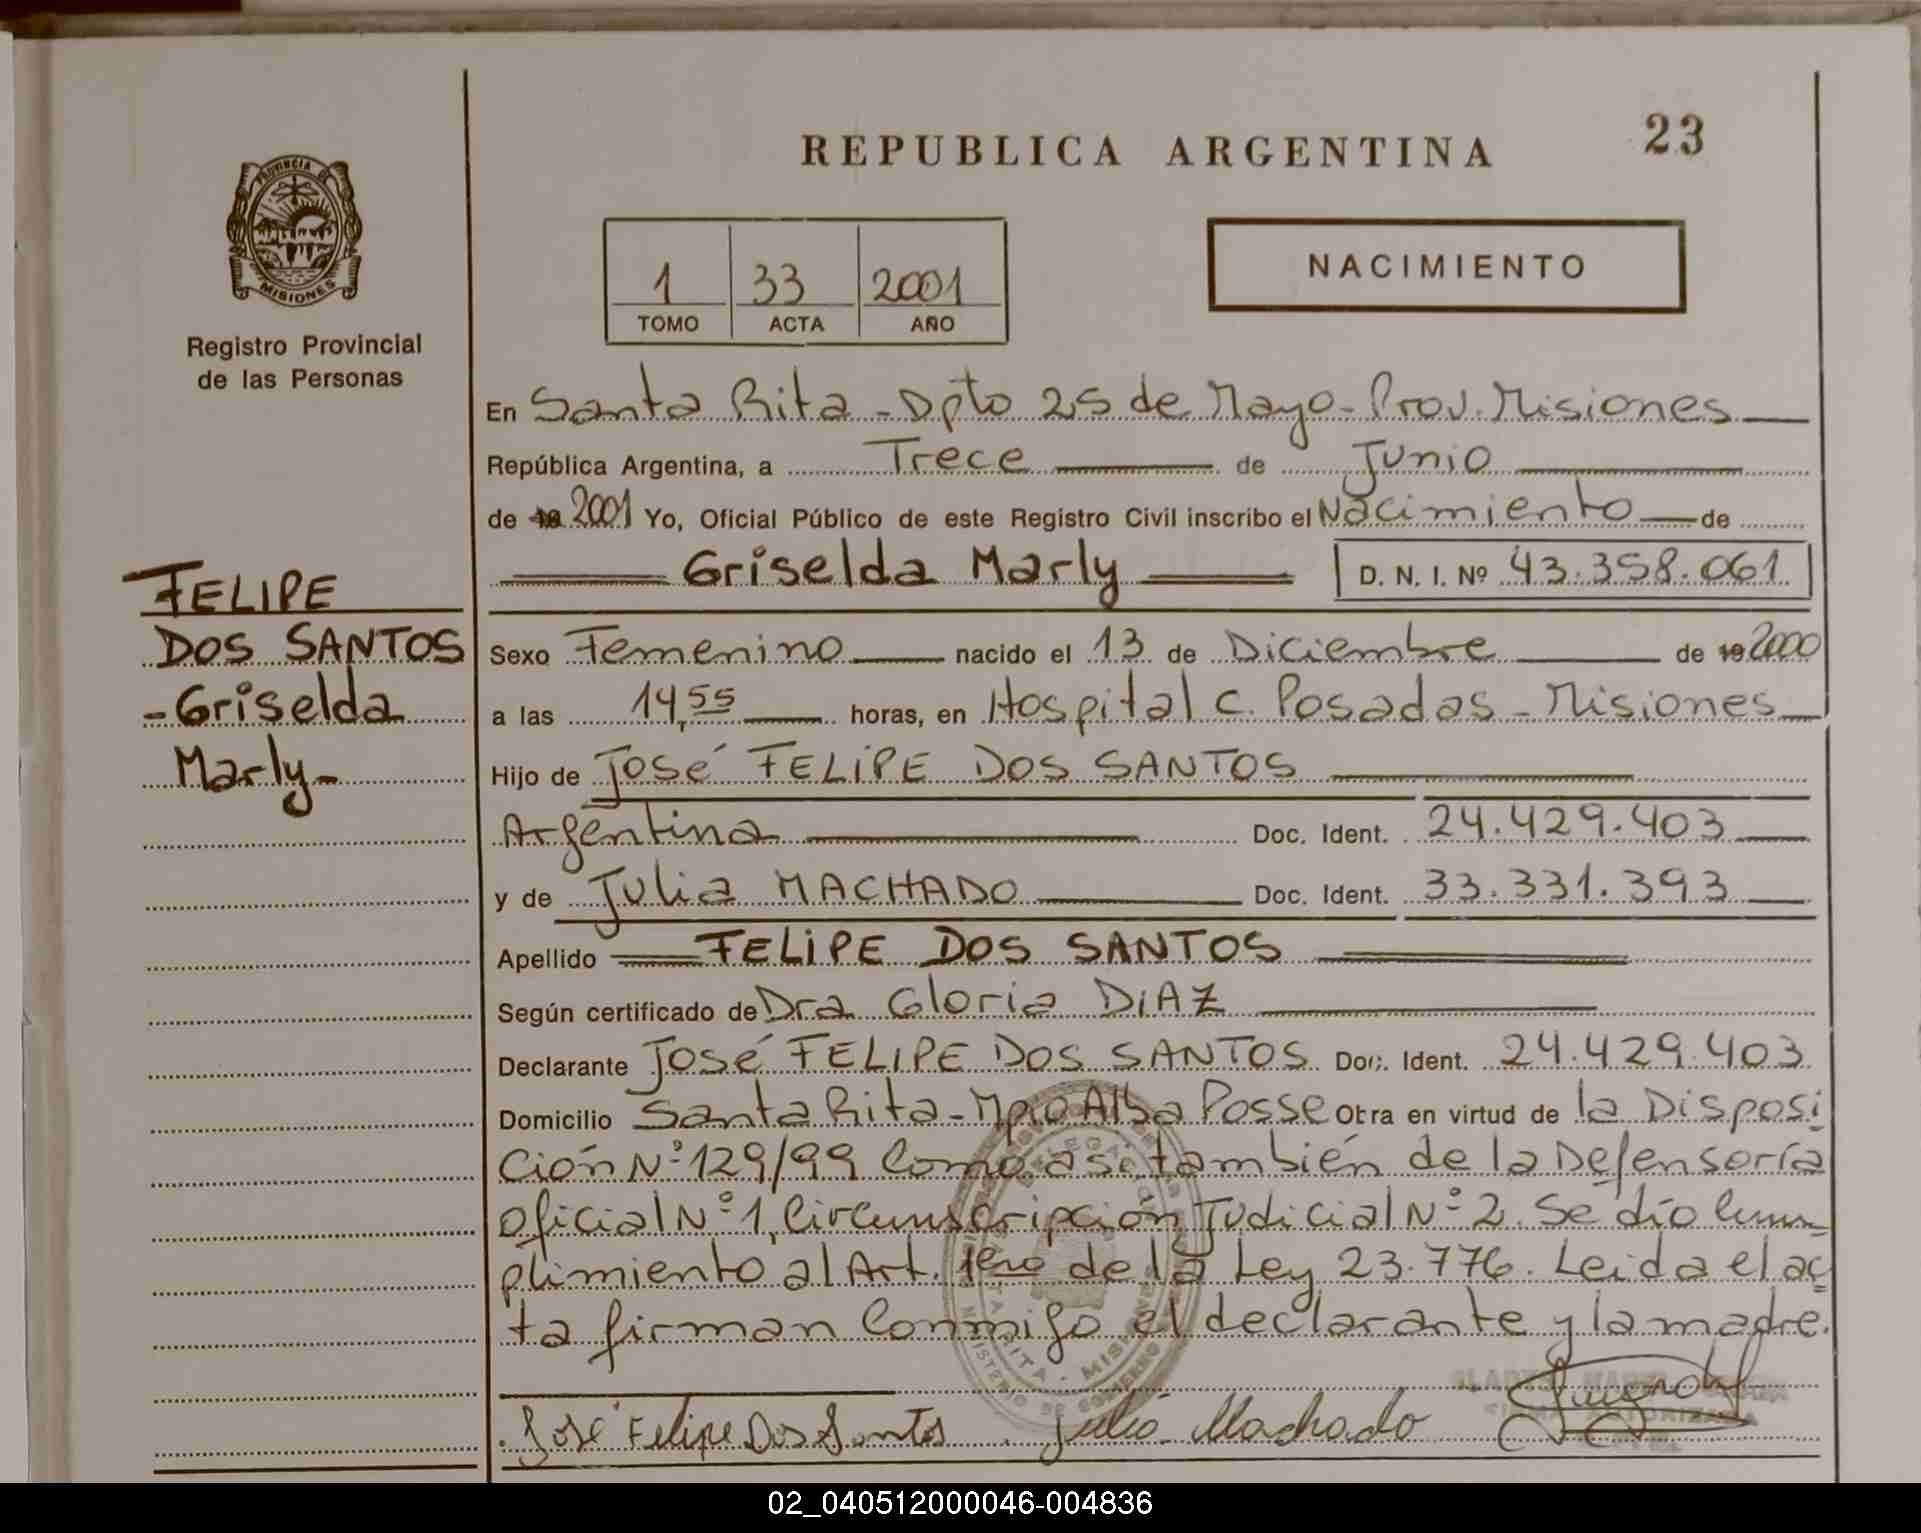 REPUBLICA ARGENTINA
23
PROVINCIA DE
MISIONES
Registro Provincial
de las Personas
1 33 2001
TOMO ACTA AÑO
NACIMIENTO
En Santa Rita - Dpto 25 de Mayo - Prov. Misiones
República Argentina, a Trece de Junio
de 19 2001 Yo, Oficial Público de este Registro Civil inscribo el Nacimiento de
Griselda Marly D. N. I. Nº 43.358.061
FELIPE
DOS SANTOS
- Griselda
Marly -
Sexo Femenino nacido el 13 de Diciembre de 19 2000
a las 14,55 horas, en Hospital C. Posadas - Misiones
Hijo de José FELIPE DOS SANTOS
Argentina Doc. Ident. 24.429.403
y de Julia MACHADO Doc. Ident. 33.331.393
Apellido FELIPE DOS SANTOS
Según certificado de Dra Gloria DIAZ
Declarante José FELIPE DOS SANTOS Doc. Ident. 24.429.403
Domicilio Santa Rita - Mpio Alba Posse Obra en virtud de la Disposi
ción Nº 129/99 Como así también de la Defensoría
oficial Nº 1, Circunscripción Judicial Nº 2. Se dio Cum
plimiento al Art. 1ero de la Ley 23.776. Leida el ac
ta firman Conmigo el declarante y la madre.
José Felipe Dos Santos Julia Machado
02_040512000046-004836